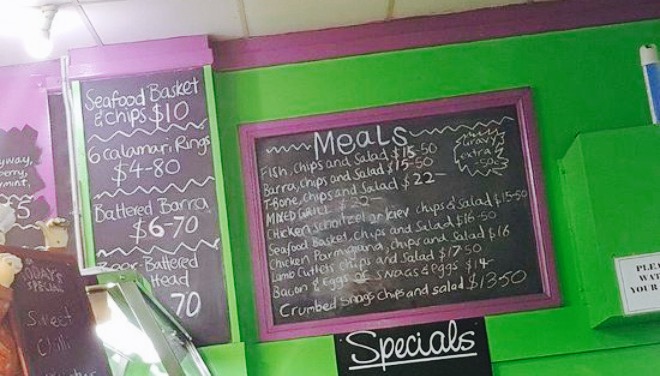 Seafood Basket
& chips $10
6 calamari Rings
$4-80
Battered Barra
$6-70
Beer-Battered
Head
70
yway,
erry,
mint,
TODAY'S
SPECIAL
Sweet
Chilli
MEALS
Fish, chips and Salad $15-50
Barra, chips and Salad $15-50
T-Bone, chips and Salad $22-
MIXED GRILL $22-
Chicken Schnitzel or kiev chips & Salad $15-50
Seafood Basket, chips and Salad $16-50
Chicken Parmigiana, chips and Salad $16
Lamb Cutlets chips and Salad $17 50
Bacon & Eggs or SNAGS & Eggs $14-
Crumbed Snags chips and salad $13-50
Gravy
extra
-50c
Specials
PLE
WAT
YOUR